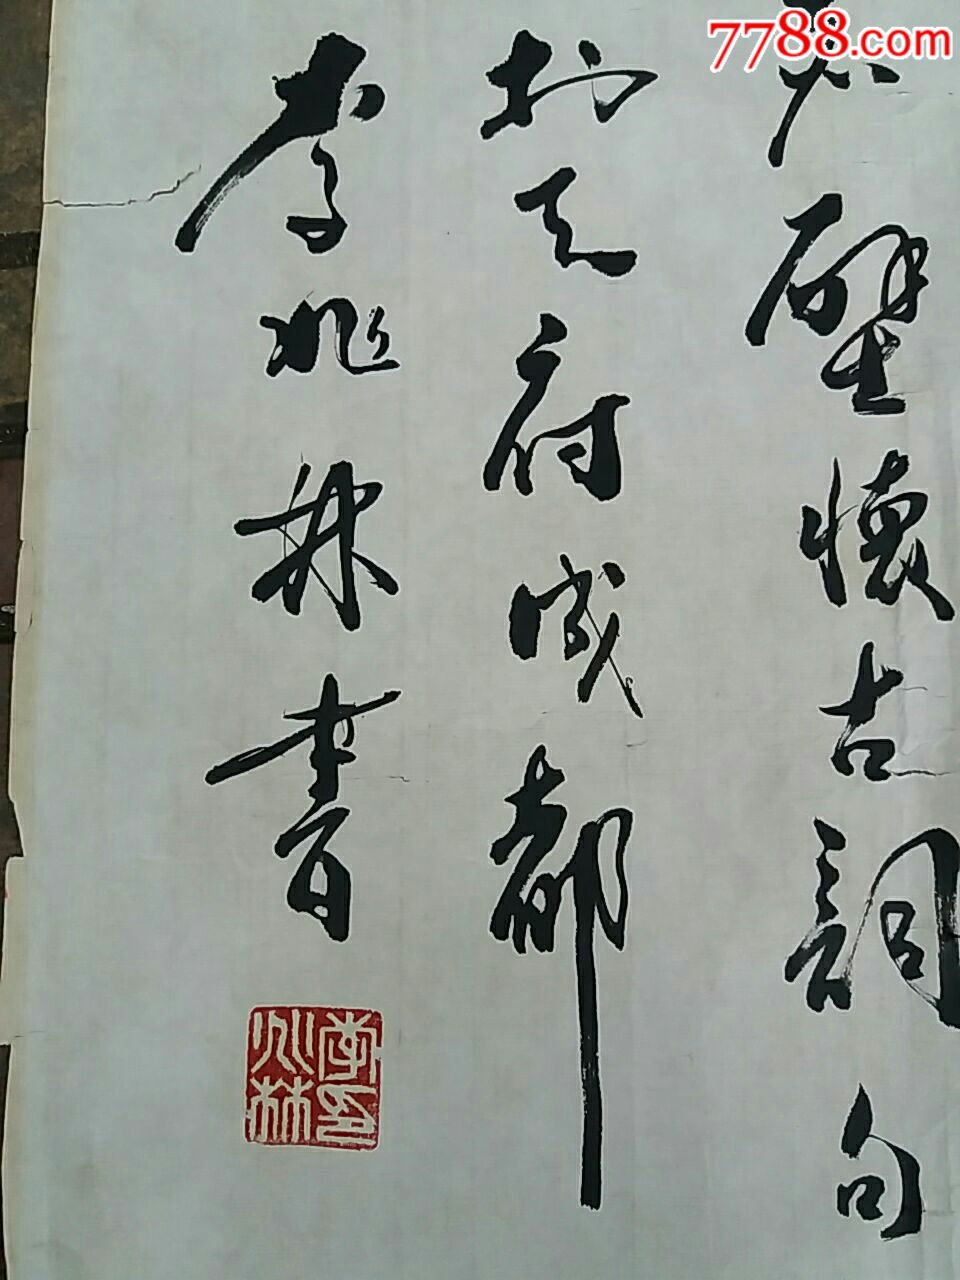 7788.com
赤壁懷古詞句
於天府成都
李兆林書
李印兆林